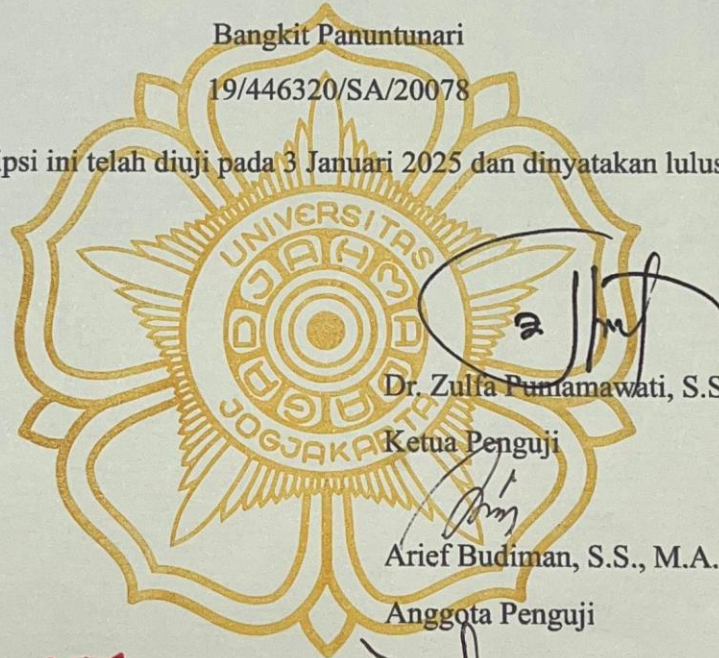 Bangkit Panuntunari
19/446320/SA/20078
ipsi ini telah diuji pada 3 Januari 2025 dan dinyatakan lulus
UNIVERSITAS
GADJAH MADA
JOGJAKARTA
Dr. Zulfa Purnamawati, S.S
Ketua Penguji
Arief Budiman, S.S., M.A.
Anggota Penguji